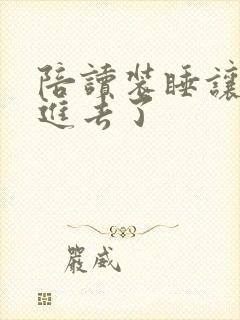 陪讀裝睡讓
進去了
嚴威